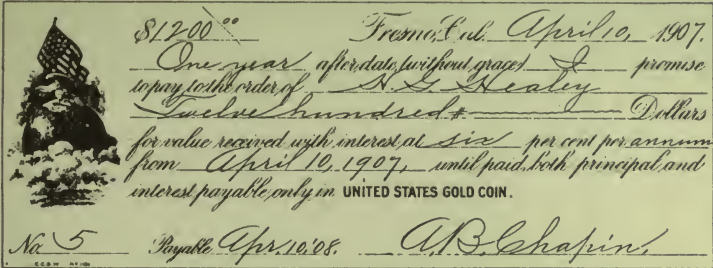 $1200⁰⁰ Fresno, Cal. April 10, 1907.
One year after date (without grace) I promise
to pay to the order of H G Healey
Twelve hundred Dollars
for value received with interest at six per cent per annum
from April 10, 1907, until paid, both principal and
interest payable only in UNITED STATES GOLD COIN.
No. 5 Payable Apr. 10, '08. A.B. Chapin.